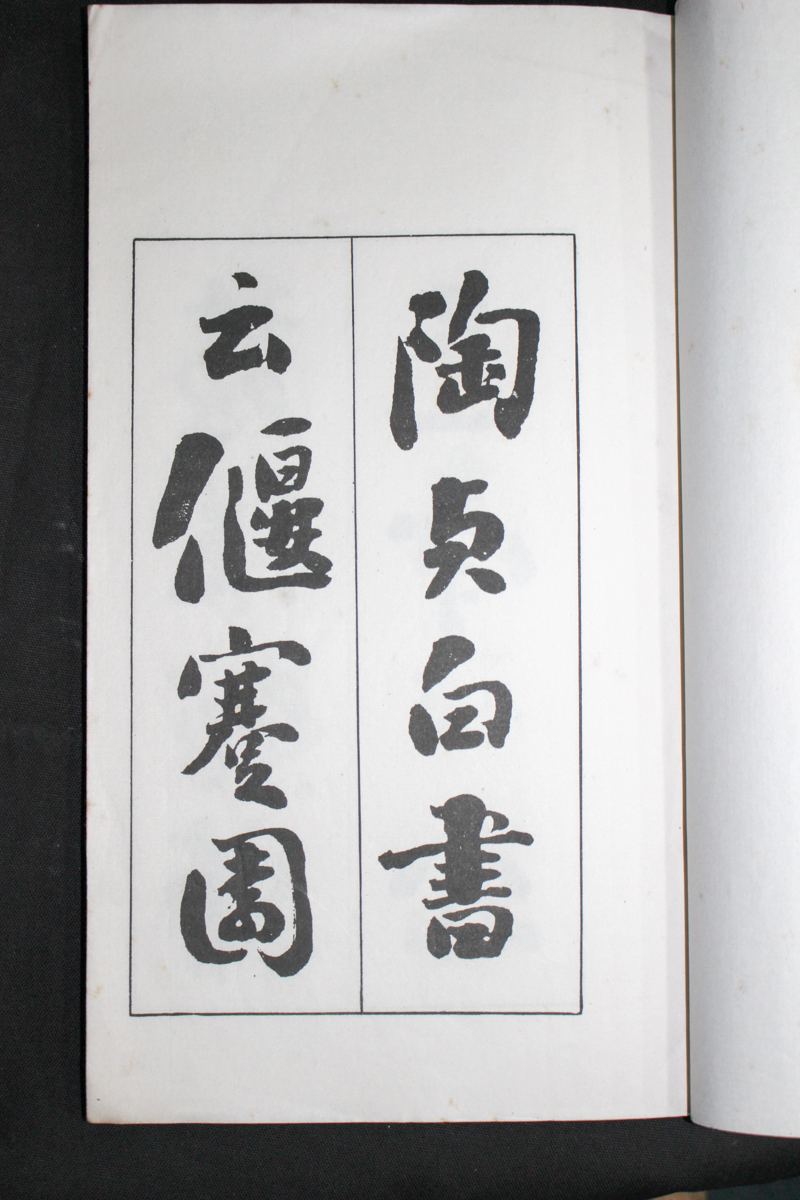 陶貞白書
云偃蹇園